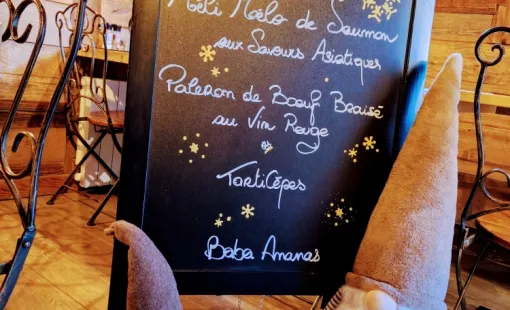 Méli Mélo de Saumon
aux Saveurs Asiatiques
Paleron de Bœuf Braisé
au Vin Rouge
TartiCêpes
Baba Ananas